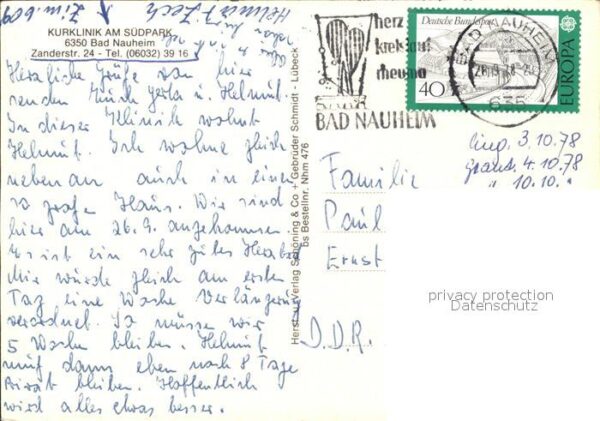 Helmut Zech
Zim. 609
KURKLINIK AM SÜDPARK
6350 Bad Nauheim
Zanderstr. 24 - Tel. (06032) 39 16
Herzliche Grüße von hier
senden Euch Gerla u. Helmut.
In dieser Klinik wohnt
Helmut. Ich wohne gleich
nebenan auch in einem
so großen Haus. Wir sind
hier am 26.9. angekommen.
Es ist ein sehr gutes Herzbad
Mir wurde gleich am ersten
Tag eine Woche Verlängerung
verordnet. So müssen wir
5 Wochen bleiben. Helmut
muß dann eben noch 8 Tage
Privat bleiben. Hoffentlich
wird alles etwas besser.
Herst. u. Verlag Schöning & Co + Gebrüder Schmidt - Lübeck
bs Bestellnr. Nhm 476
herz
kreislauf
rheuma
BAD NAUHEIM
Deutsche Bundespost
40
EUROPA
BAD NAUHEIM
635
eing. 3.10.78
geantw. 4.10.78
" 10.10. "
Familie
Paul
Ernst
D.D.R.
privacy protection
Datenschutz